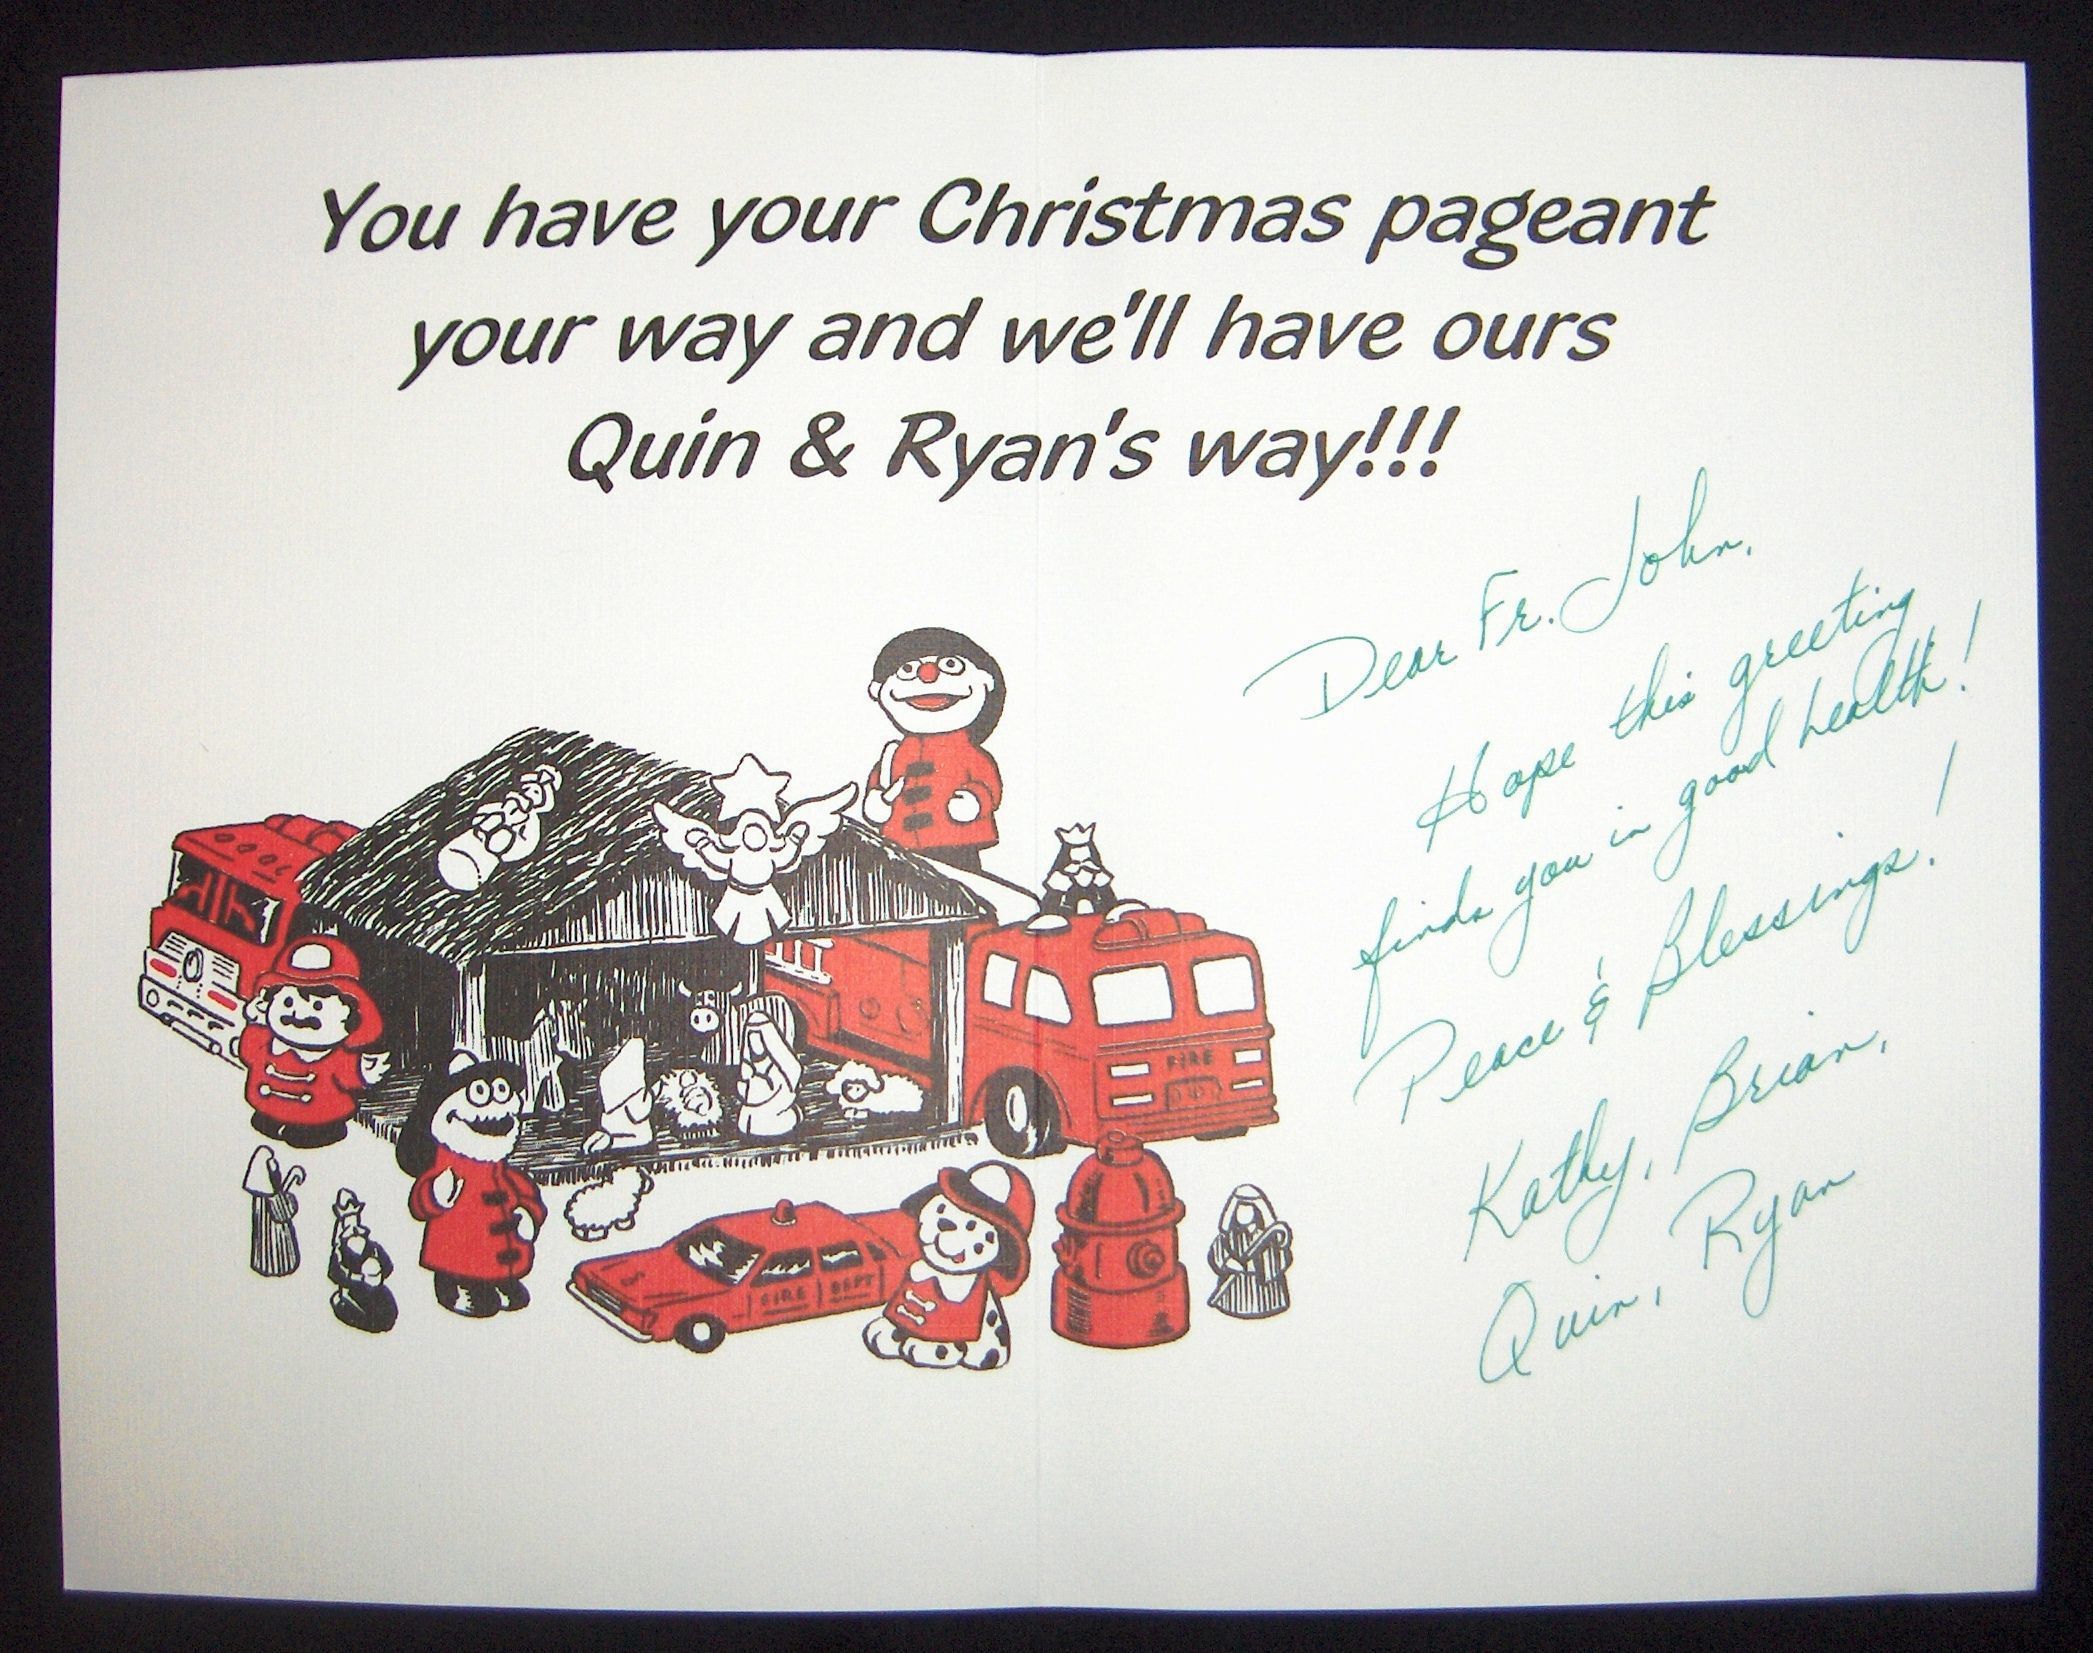 You have your Christmas pageant
your way and we'll have ours
Quin & Ryan's way!!!
Dear Fr. John,
Hope this greeting
finds you in good health!
Peace & Blessings!
Kathy, Brian,
Quin, Ryan
FIRE
FIRE DEPT